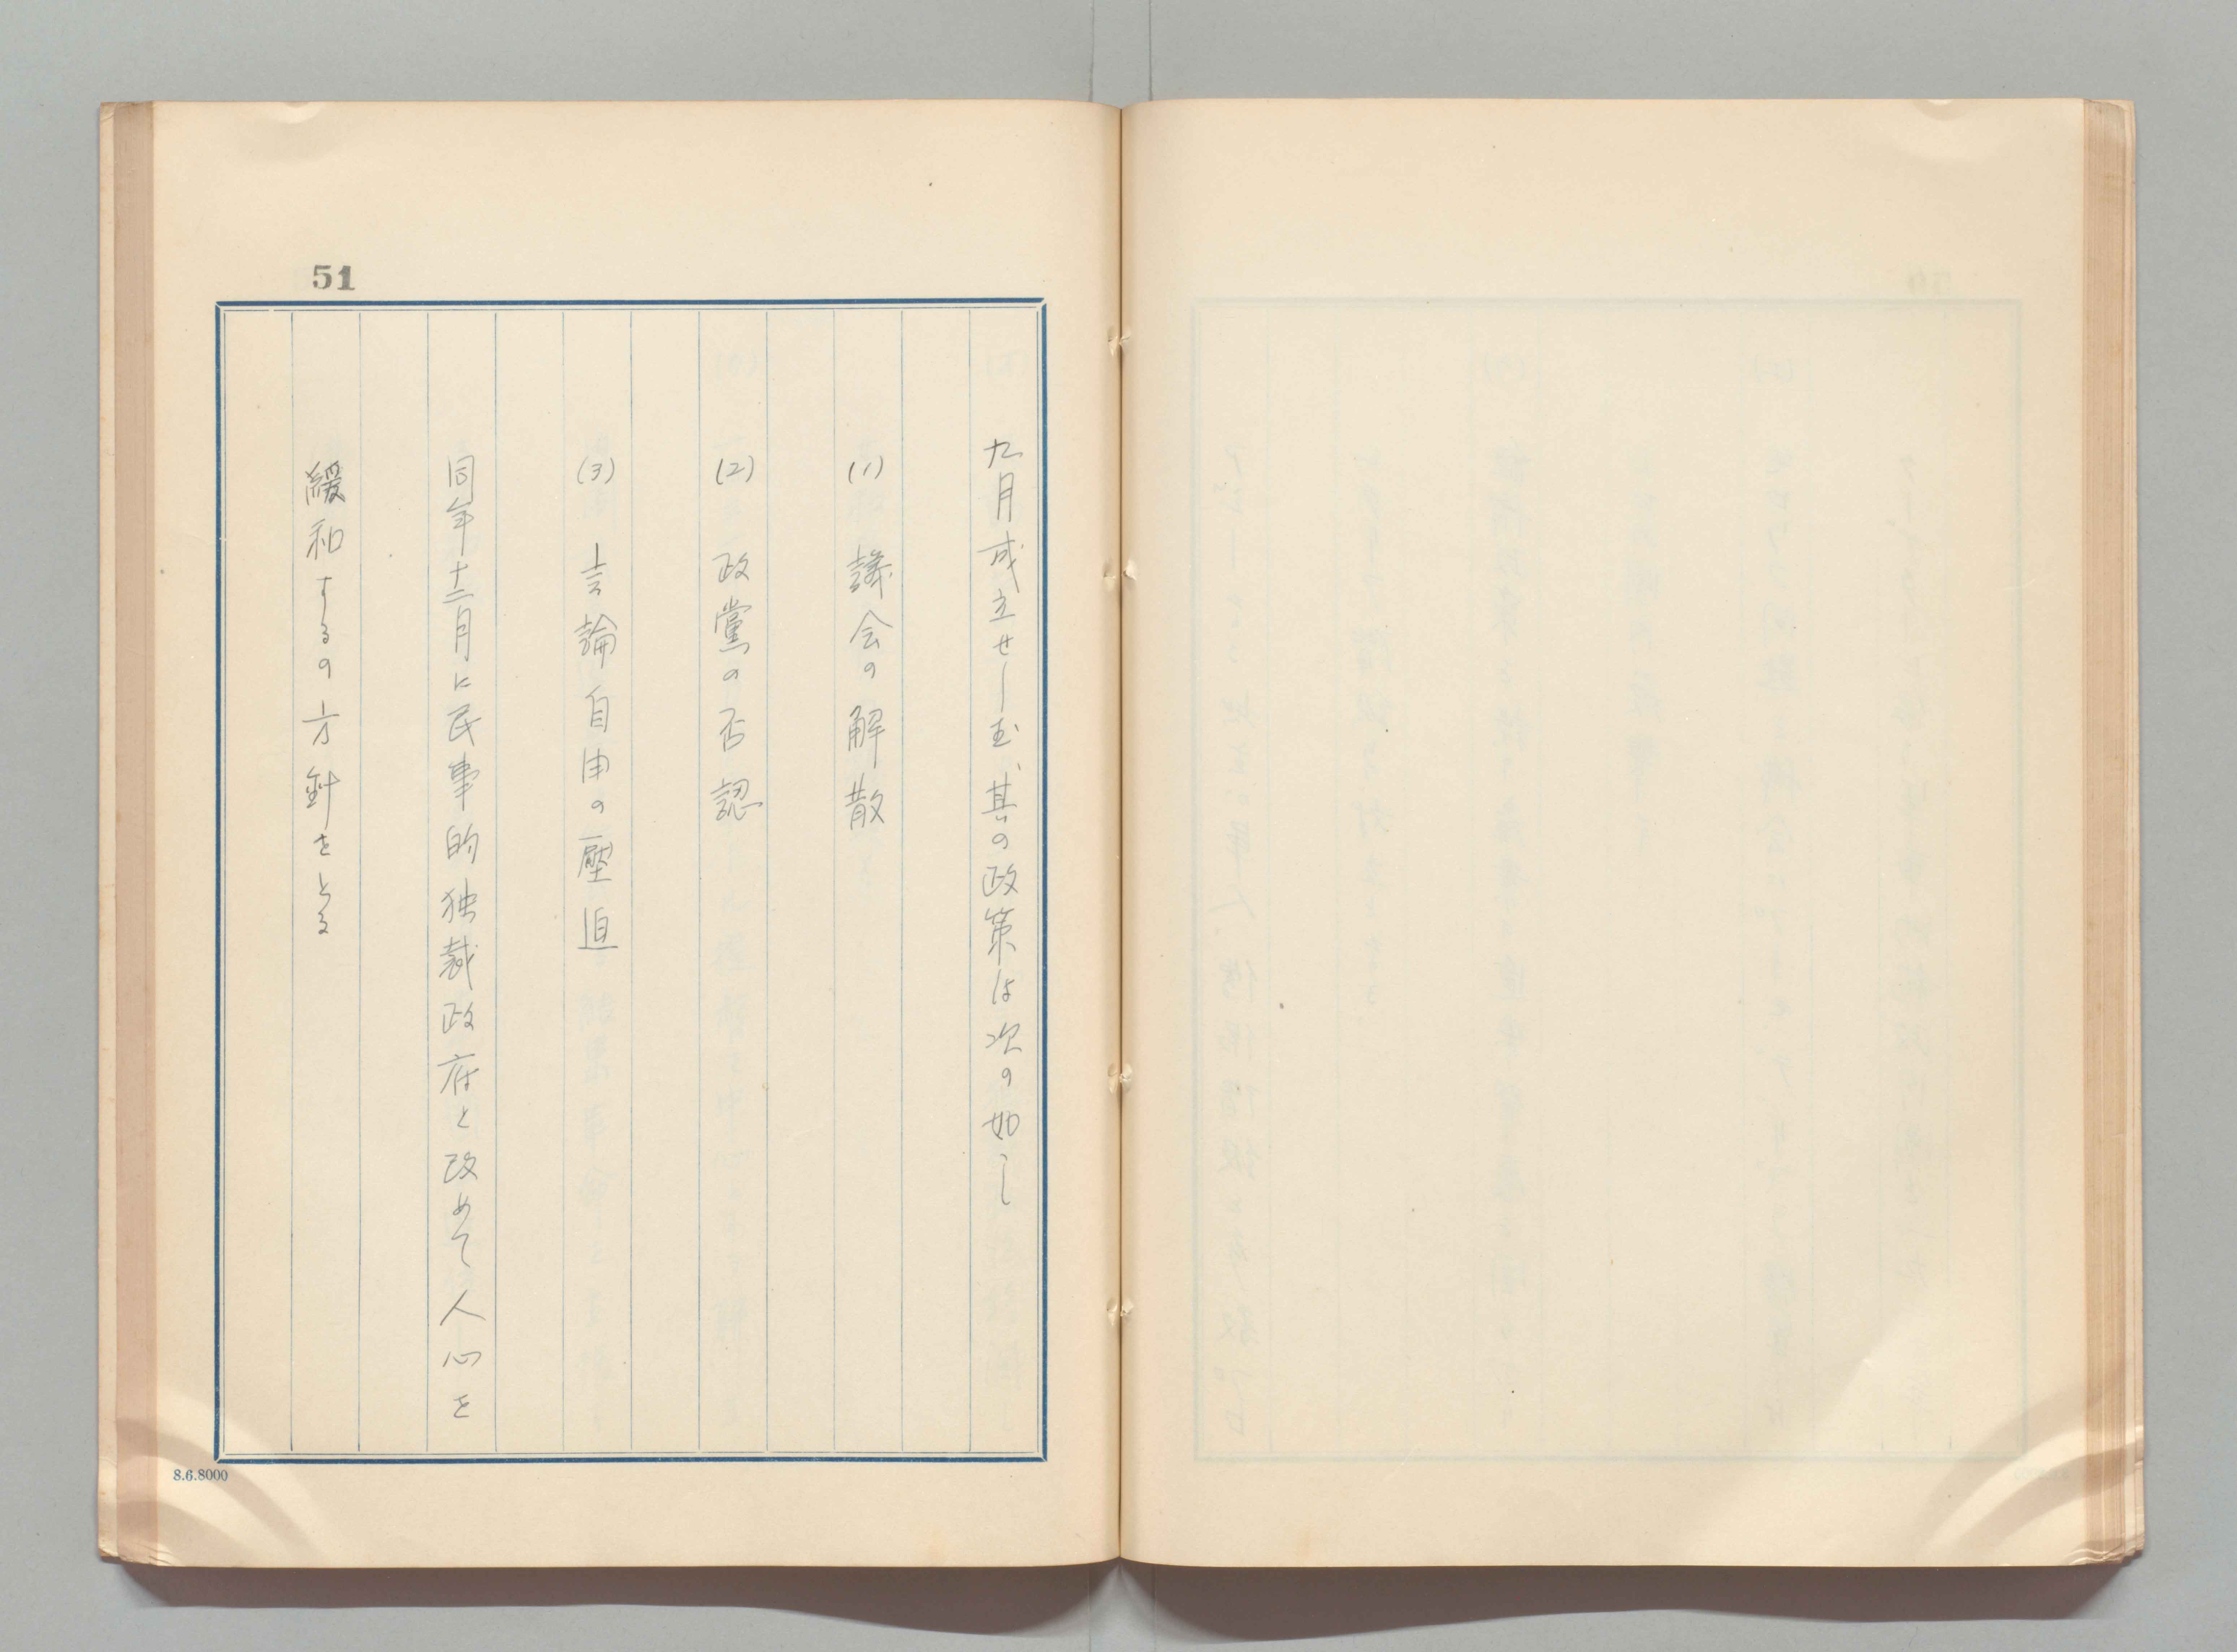 51
九月成立せしも其の政策は次の如し
(1) 議会の解散
(2) 政黨の否認
(3) 言論自由の壓迫
同年十二月に民事的独裁政府と改めて人心を
緩和するの方針をとる
8.6.8000